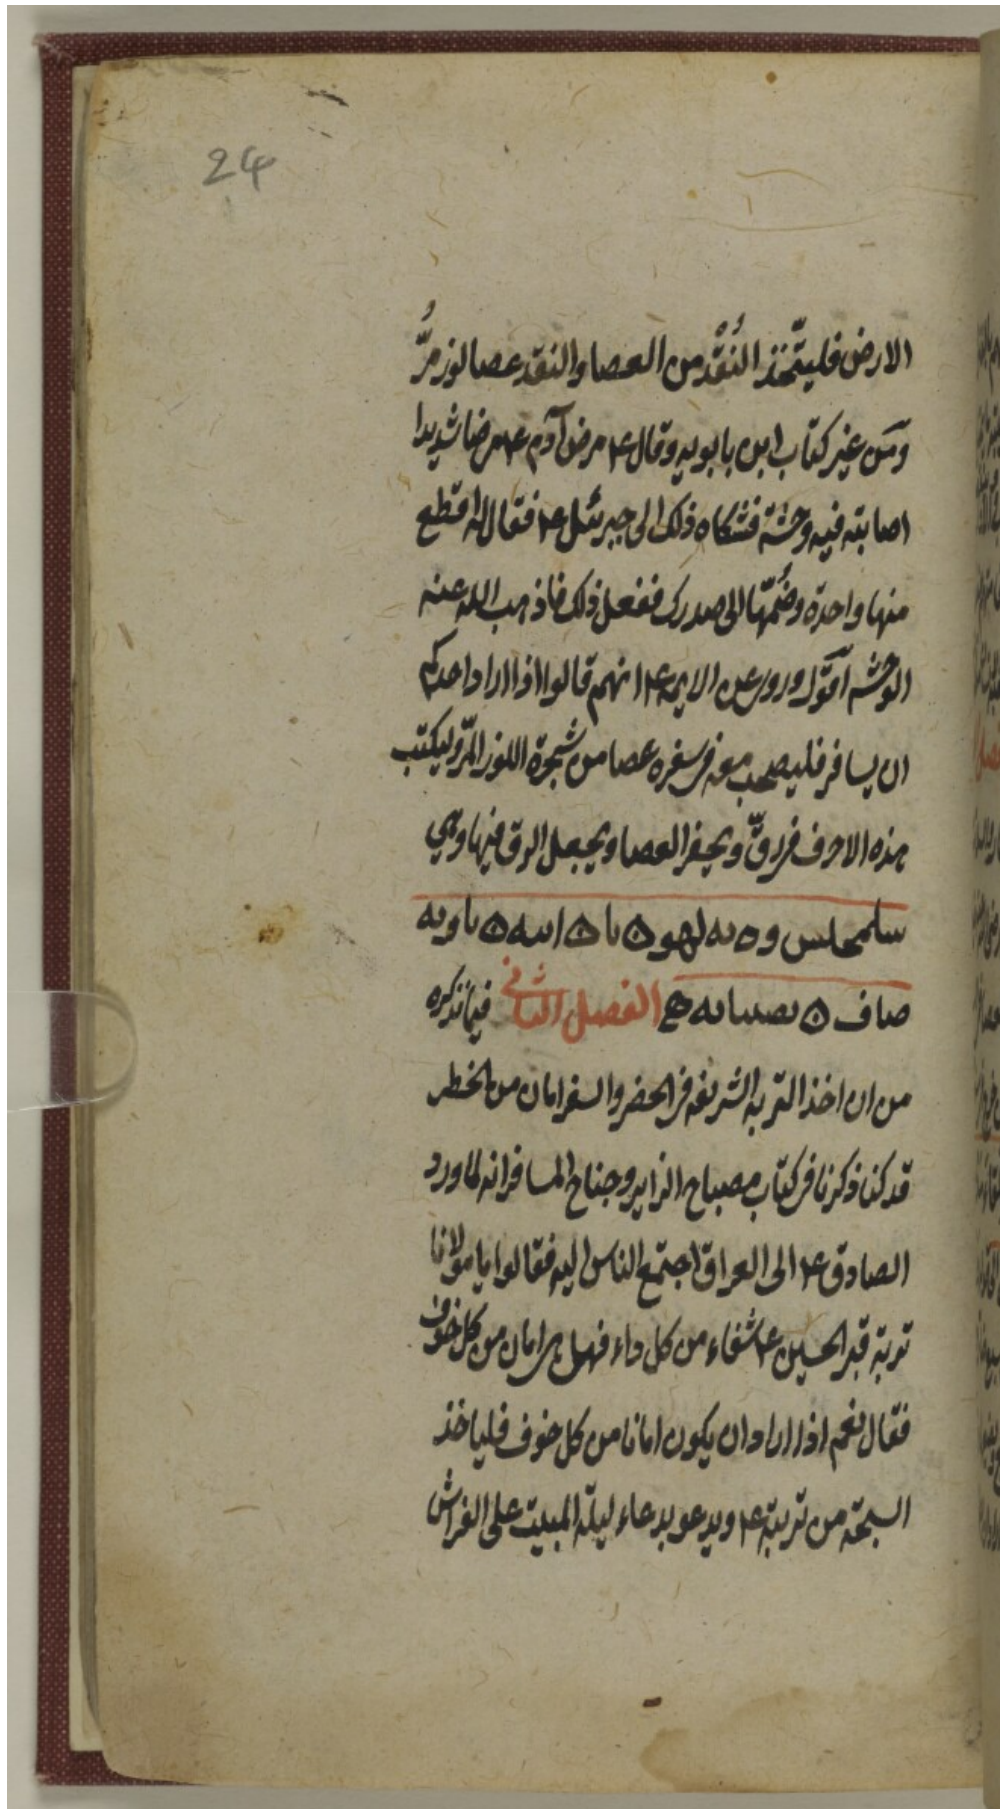 24
الارض فليتّخذ النُقْد من العصا والنقد عصا لوز مرٌّ
ومن غير كتاب ابن بابويه وقال ع مرض آدم ع مرضا شديدا
اصابته فيه وحشة فشكاه ذلك الى جبرئيل ع فقال له اقطع
منها واحدة وضُمّها الى صدرك ففعل ذلك فاذهب الله عنه
الوحشة اقول وروى عن الائمة ع انهم قالوا اذا اراد احدكم
ان يسافر فليصحب معه فى سفره عصا من شجرة اللوز المرّ وليكتب
هذه الاحرف فى رقّ ويحفر العصا ويجعل الرق فيها وهى
سلمحلس وه به لهو ه با ه ابنه ه باويه
صاف ه بصنابه هع الفصل الثانى فيما نذكره
من ان اخذ التربه الشريفة فى الحضر والسفر امان من الخطر
قد كنا ذكرنا فى كتاب مصباح الزاير وجناح المسافر انه لما ورد
الصادق ع الى العراق اجتمع الناس اليه فقالوا يا مولانا
تربة قبر الحسين ع شفاء من كل داء فهل هى امان من كل خوف
فقال نعم اذا اراد ان يكون امانا من كل خوف فلياخذ
السبحة من تربته ع ويدعو بدعاء ليلة المبيت على الفراش